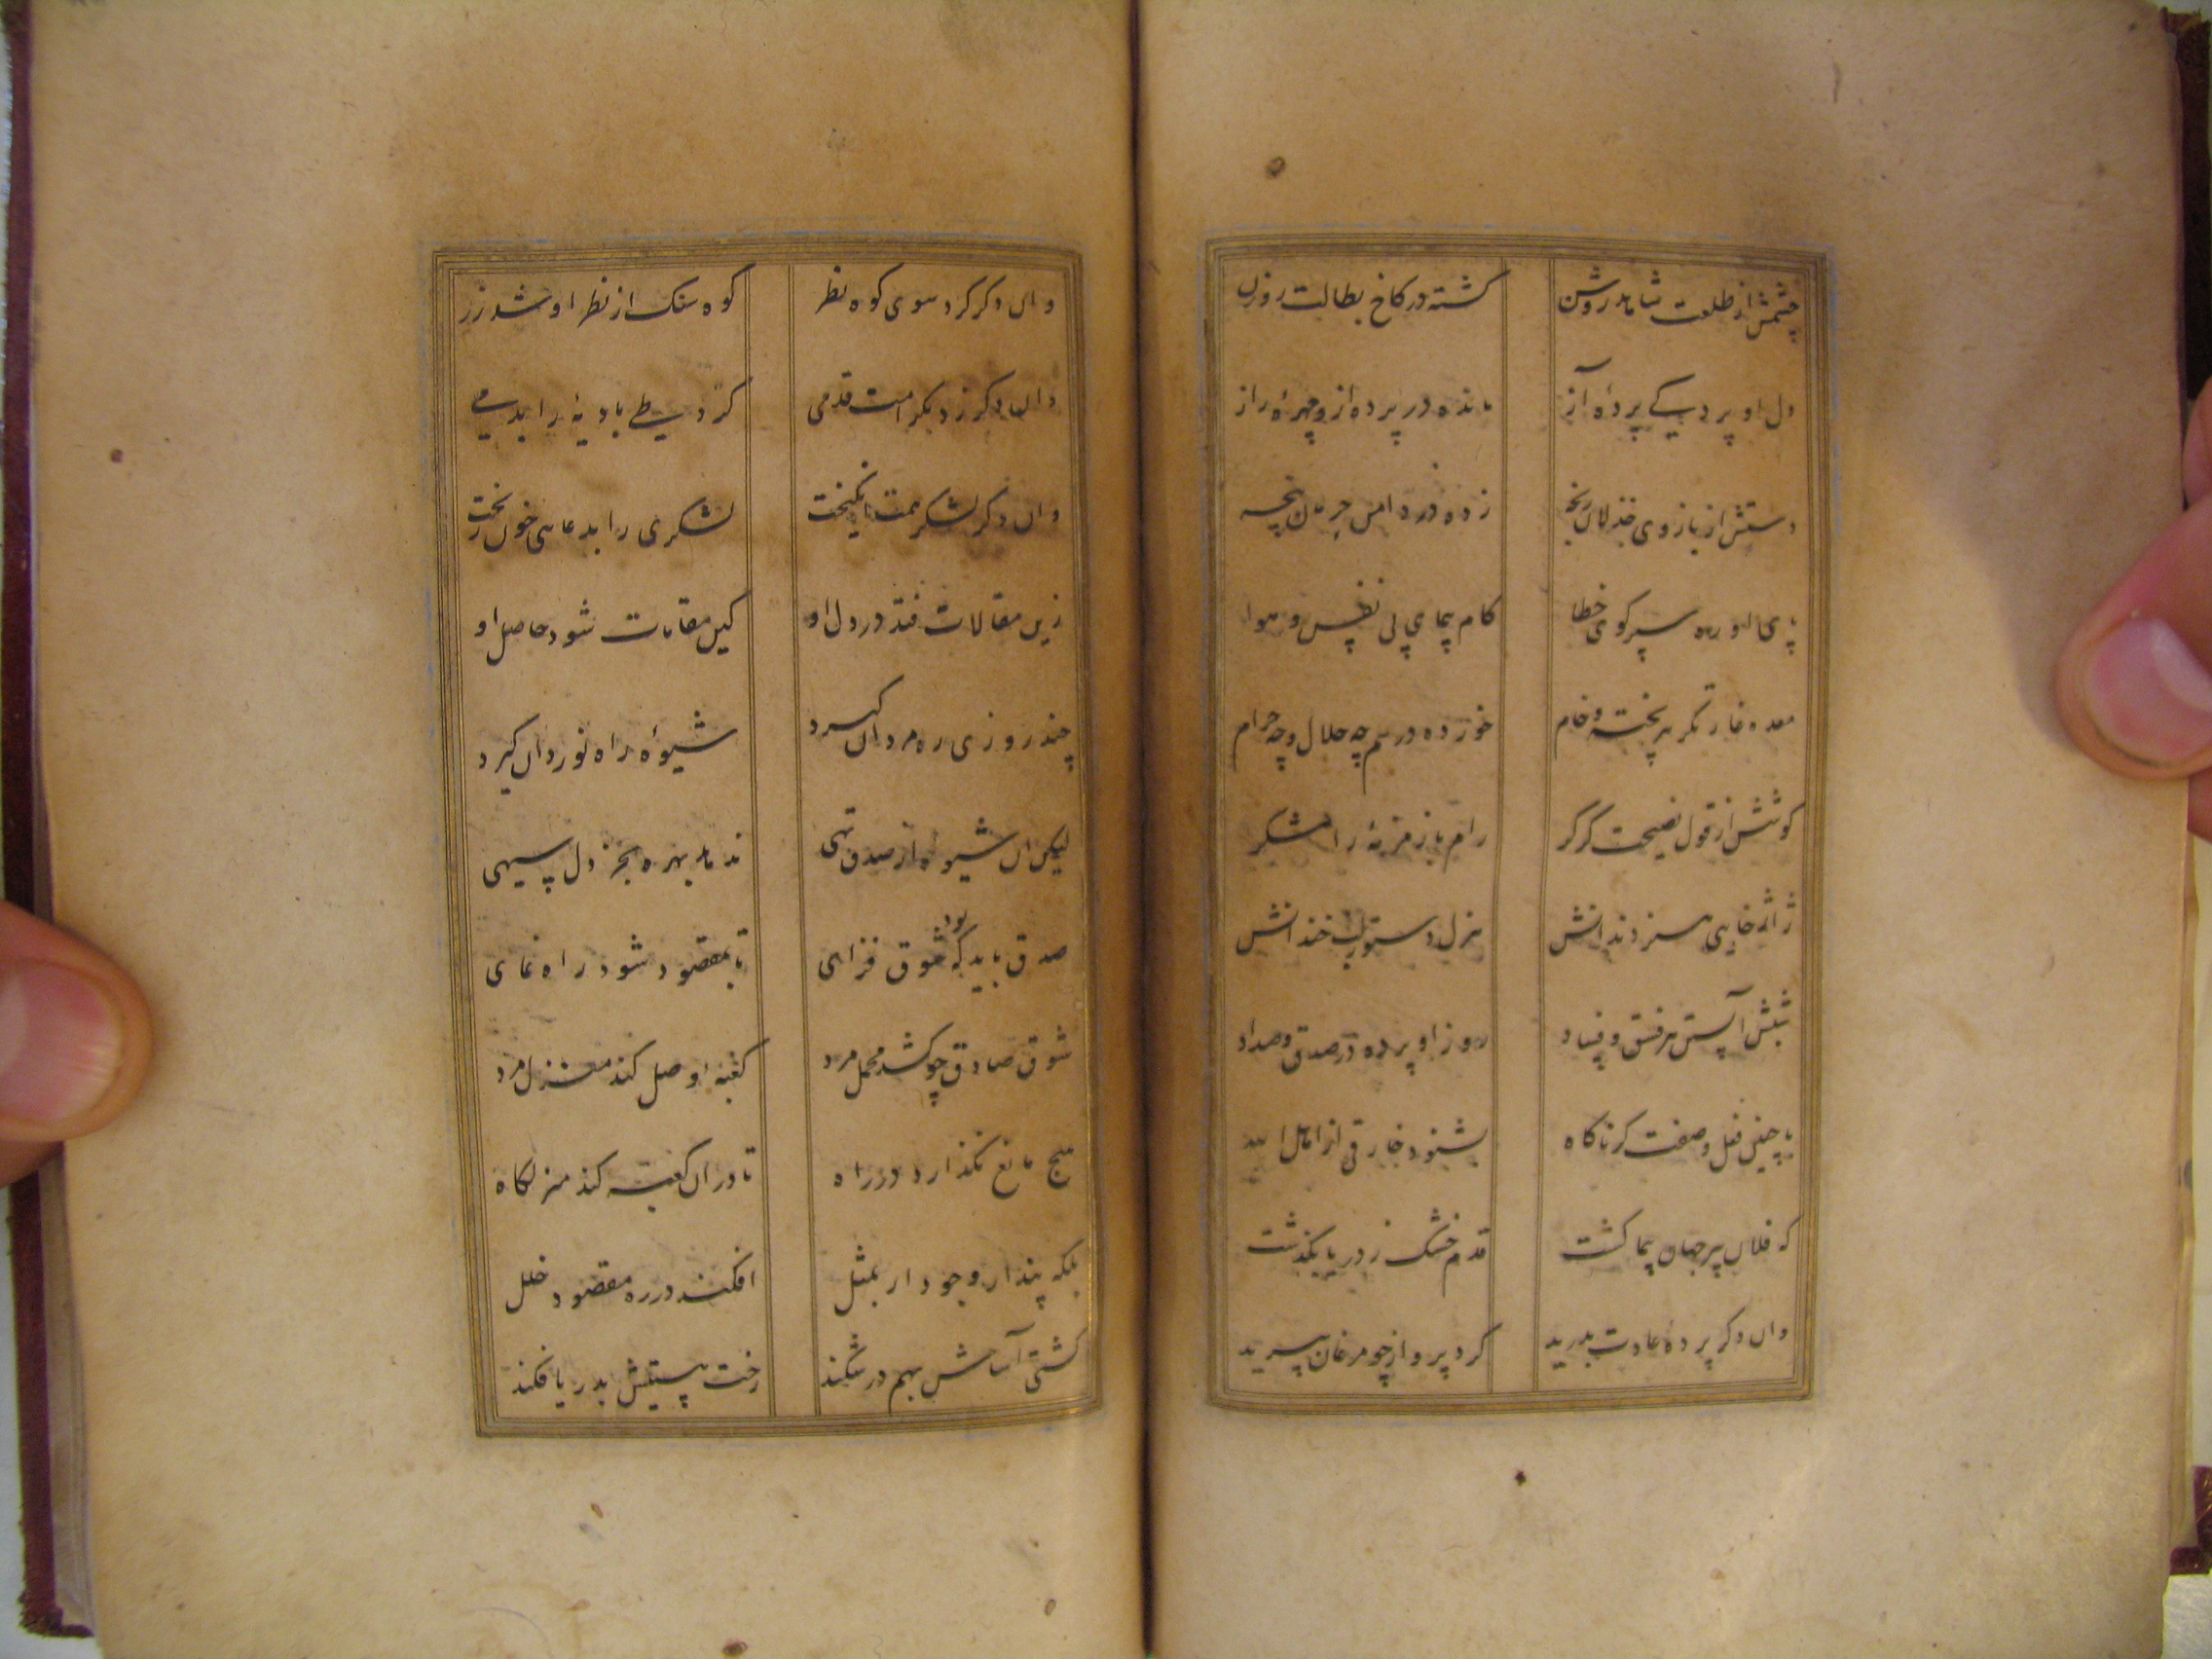 چشمش از طلعت شاهد روشن گشته در کاخ بطالت روزن
دل او پردگیی پرده آز مانده در پرده ازو چهره راز
دستش از بازوی خذلان رنجه زده در دامن حرمان پنجه
پای او ره سپر کوی خطا کام پیمای پی نفس و هوا
معده غارتگر هر پخته و خام خورده در هم چه حلال و چه حرام
کوشش از قول نصیحت کر کر رام با زمزمهٔ رامشکر
ژاژخایی هنر دندانش هزل دستور لب خندانش
شبش آبستن هر فسق و فساد روز او پرده در صدق و سداد
با چنین فعل و صفت کر ناکاه بشنود خارقی از اهل اله
که فلان پیر جهان پیما کشت قدم خشک ز دریا بکذشت
وان دکر پرده عادت بدرید کرد پرواز چو مرغان بپرید
وان دکر کرد سوی کوه نظر کوه سنک از نظر او شد زر
وان دکر زد بکرامت قدمی کرد طی بادیه را بدمی
وان دکر لشکر همت انکیخت لشکری را بدعایی خون ریخت
زین مقالات فتد در دل او کین مقامات شود حاصل او
چند روزی ره مردان کیرد شیوه راه نوردان کیرد
لیکن ان شیوه از صدق تهی ندهد بهره بجز دل سیهی
صدق باید که بود شوق فزای تا بمقصود شود راه نمای
شوق صادق چو کشد محمل مرد کعبه وصل کند منزل مرد
هیچ مانع نکذارد در راه تا در ان کعبه کند منزلکاه
بلکه پندار وجود ار بمثل افکند در ره مقصود خلل
کشتی آسایش بهم در شکند رخت هستیش بدریا فکند